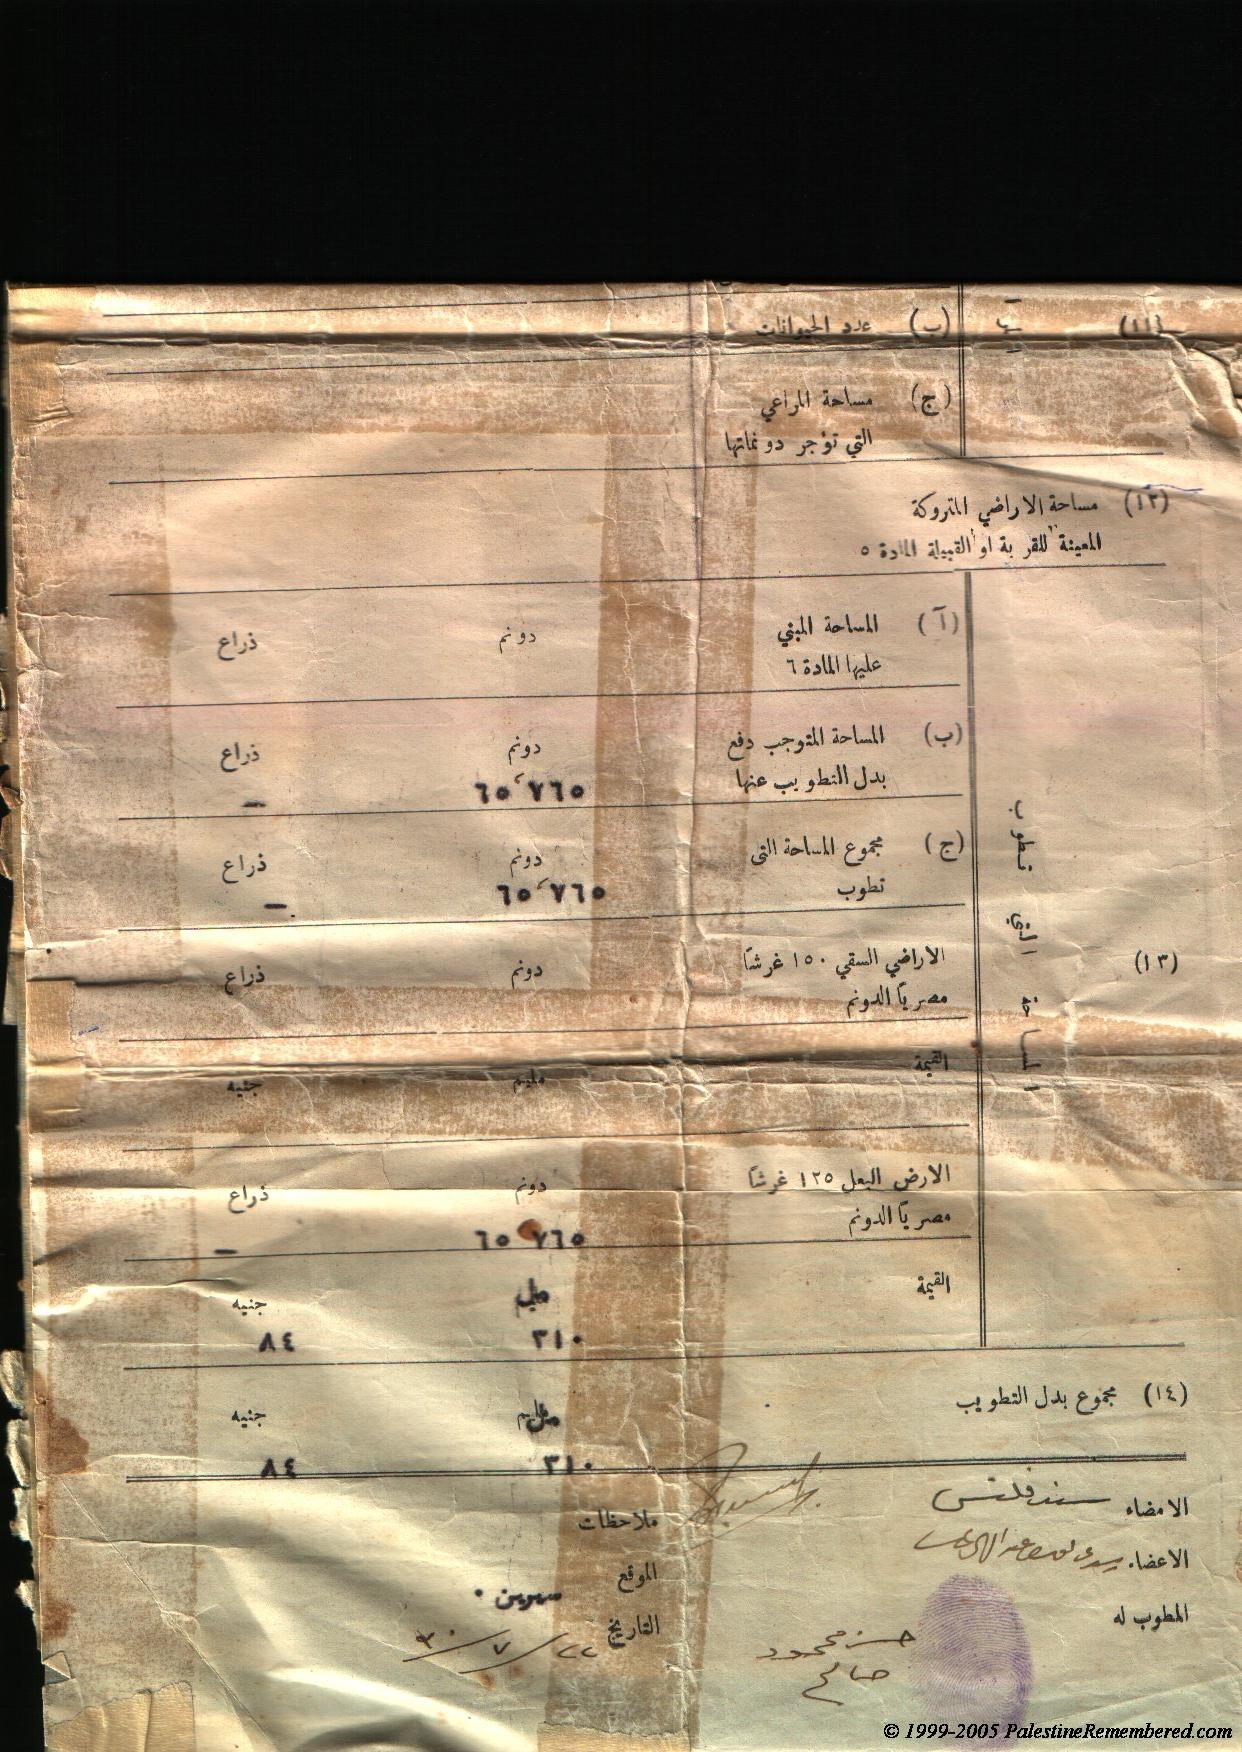 (١١) (ب) عدد الحيوانات
(ج) مساحة المراعي
التي تؤجر دونماتها
(١٢) مساحة الاراضي المتروكة
المعينة للقرية او القبيلة المادة ٥
المساحة التي تطوب
(آ) المساحة المبني دونم ذراع
عليها المادة ٦
(ب) المساحة المتوجب دفع دونم ذراع
بدل التطويب عنها ٦٥٬٧٦٥ —
(ج) مجموع المساحة التي دونم ذراع
تطوب ٦٥٬٧٦٥ —
(١٣) الاراضي السقي ١٥٠ غرشاً دونم ذراع
مصرياً الدونم
القيمة مليم جنيه
الارض البعل ١٢٥ غرشاً دونم ذراع
مصرياً الدونم ٦٥ ٧٦٥ —
القيمة مل جنيه
٣١٠ ٨٤
(١٤) مجموع بدل التطويب مل جنيه
٣١٠ ٨٤
الامضاء ملاحظات
الاعضاء الموقع سيرين
المطوب له التاريخ ٢٢/٧/٣٠
محمود
صالح
© 1999-2005 PalestineRemembered.com